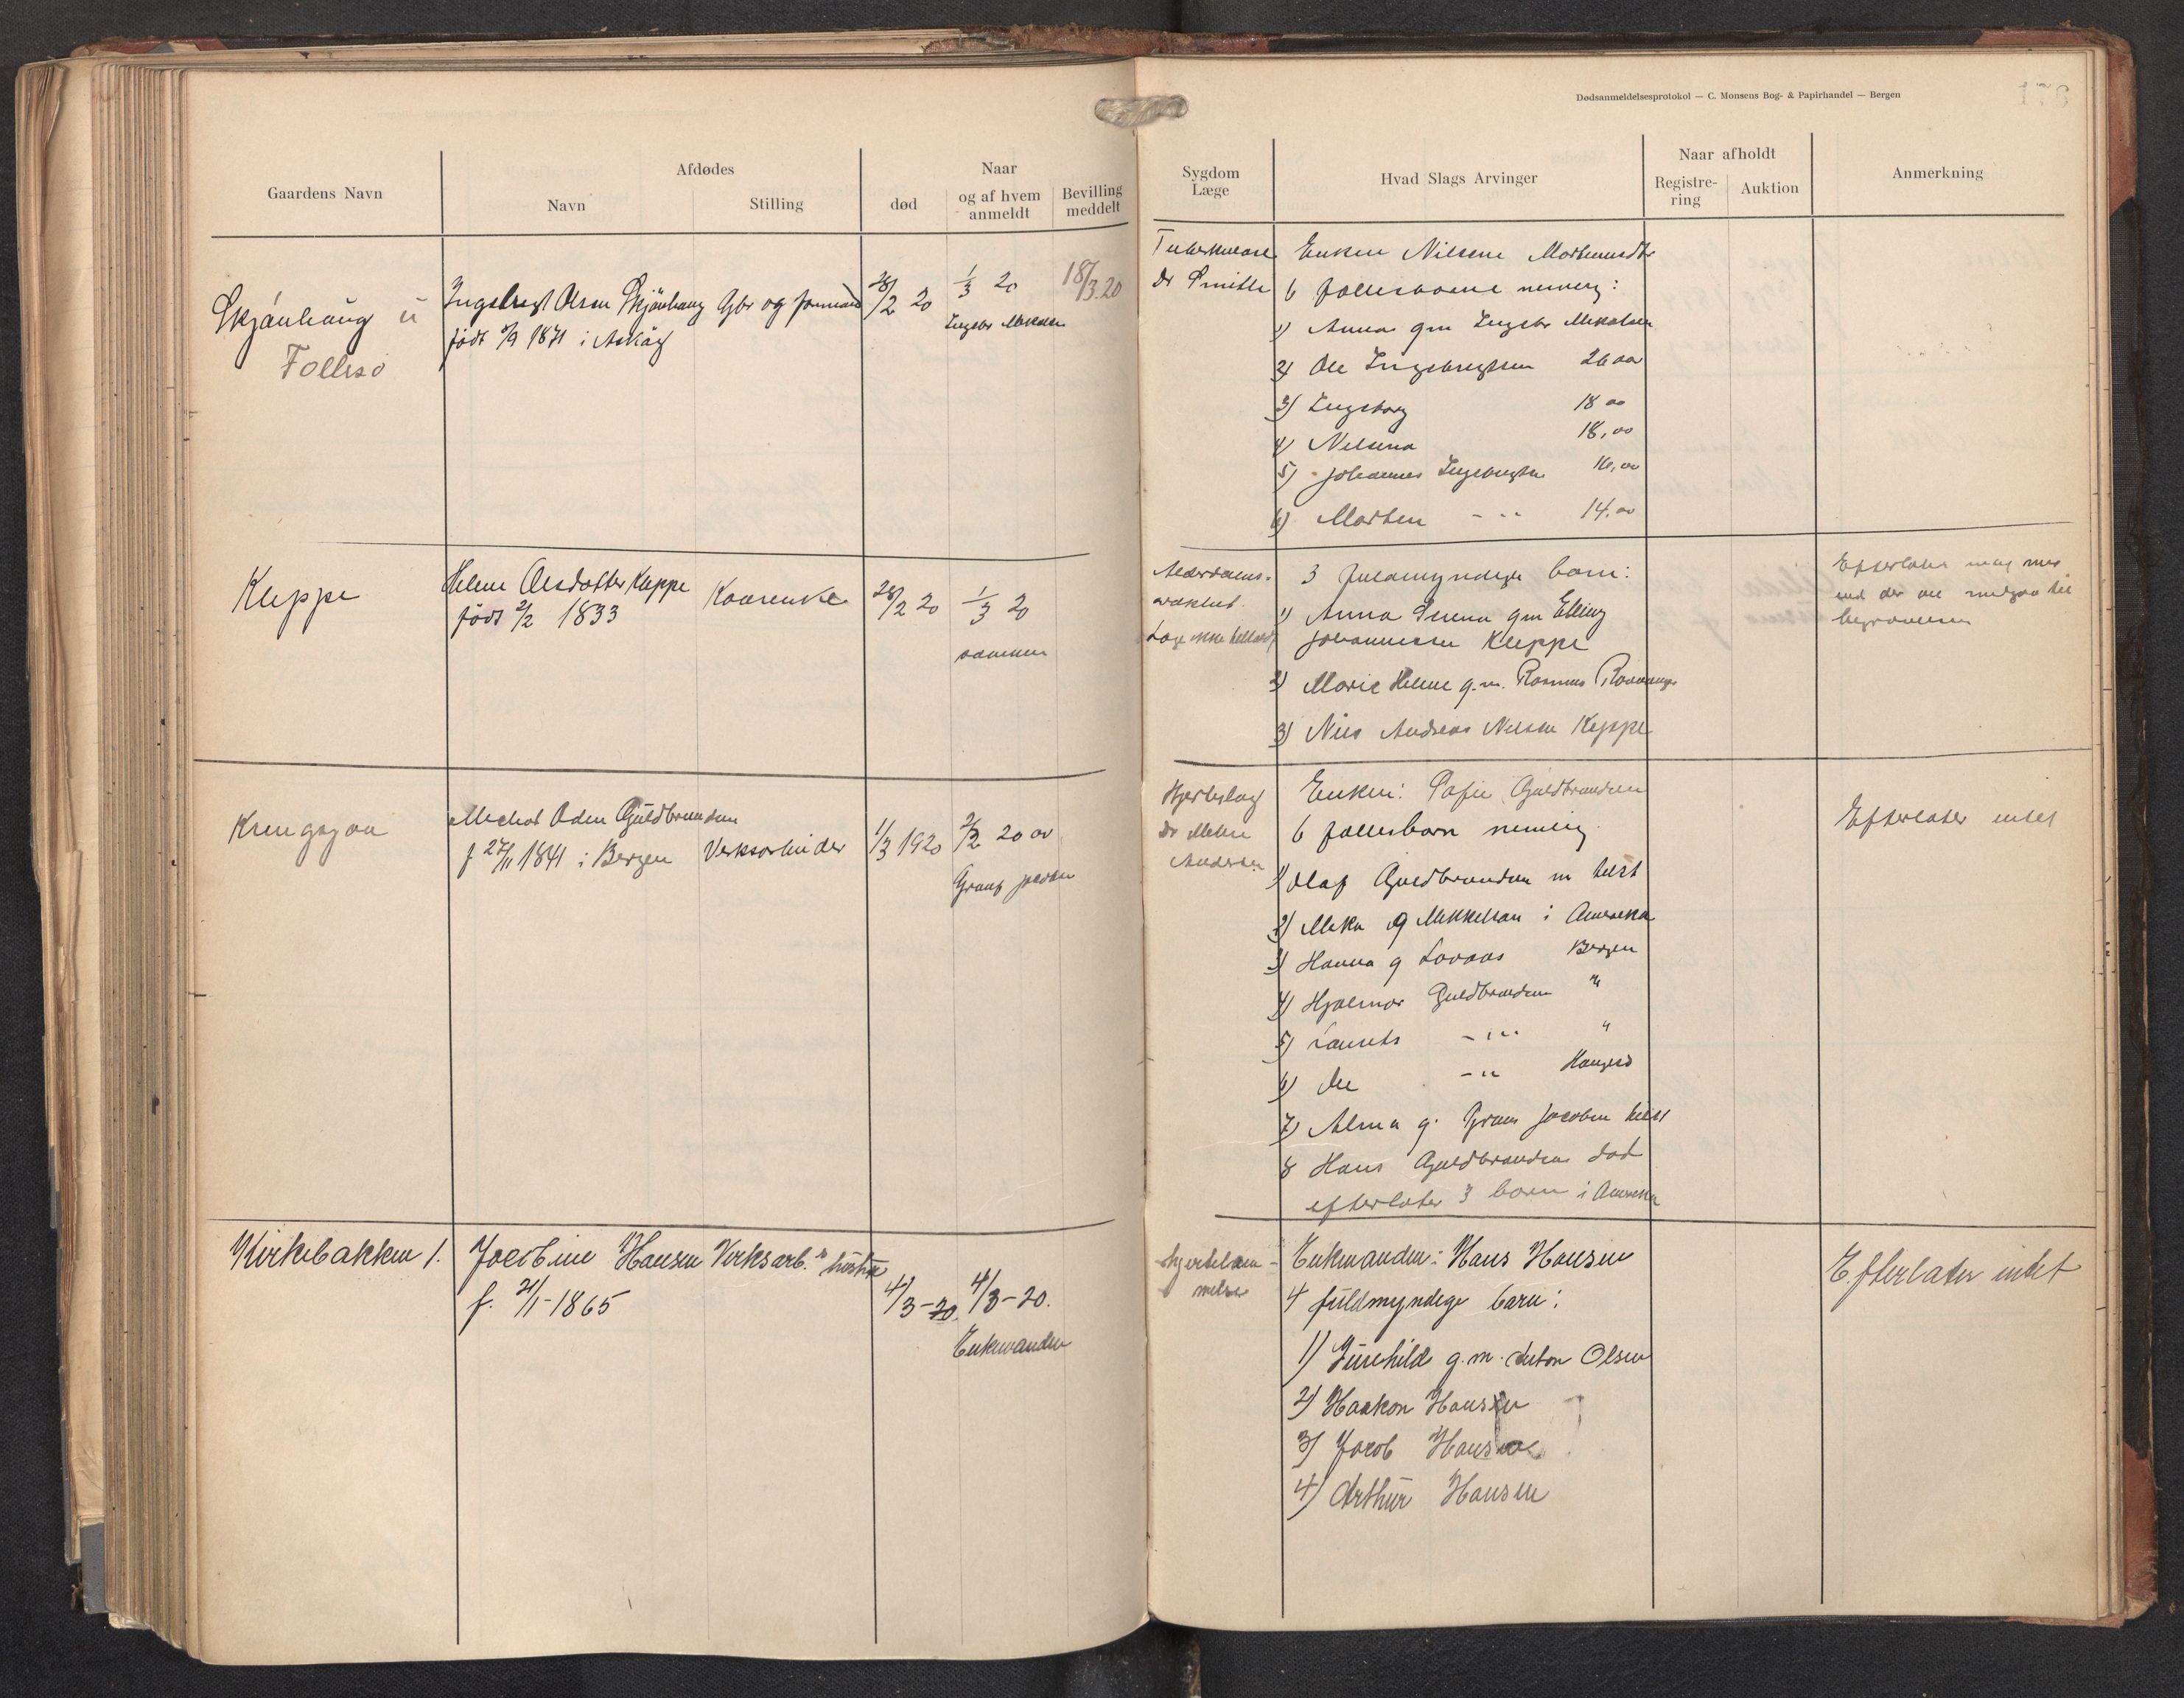 Dødsanmeldelsesprotokol — C. Monsens Bog- & Papirhandel — Bergen
Gaardens Navn
Afdødes
Navn
Stilling
Naar
død
og af hvem
anmeldt
Bevilling
meddelt
Sygdom
Læge
Hvad Slags Arvinger
Naar afholdt
Registre-
ring
Auktion
Anmerkning
Skjånhaug u
Follesø
Ingebregt Olsen Skjånhaug Gbr og
født 1871 i Askøy
28/2 20
1/3 20
Ingebr Mikalsen
18/3.20
Tuberkulose
Dr Smith
Enken Nilsine
6 fællesbarn nemlig:
1) Anna gm Ingebr Mikalsen
2) Ole Ingebregtsen 26 aar
3) Ingeborg 18 aar
4) Nilsina 18, aar
5) Johannes Ingebregtsen 16, aar
6) Morten - " 14. aar
Kleppe
Helene Olsdatter Kleppe
født 2/2 1833
Kaarenke
28/2 20
1/3 20
sønnen
Alderdoms-
svakhet
Læge ikke
3 fuldmyndige barn:
1) Anna Serina gm Elling
Johannessen Kleppe
2) Marie Helene g.m. Rasmus
3) Nils Andreas Nilsen Kleppe
Efterlater
end der vil medgaa til
begravelsen
Kringsjaa
Oden Guldbrandsen
f 27/11 1841 i Bergen
Verksarbeider
1/3 1920
2/3 20
Jacobsen
Hjerteslag
Dr
Andersen
Enken: Sofie Guldbrandsen
6 fællesbarn nemlig
1) Olaf Guldbrandsen
2) g Mikkelsen i Amerika
3) Hanna g Bergen
4) Hjalmar Guldbrandsen "
5) Laurits - " "
6) Ole - " Haugesd
7) Alma g. Jacobsen
8 Hans Guldbrandsen død
efterlater 3 barn i Amerika
Efterlater intet
Kirkebakken 1.
Jacobine Hansen Verksarb.s hustru
f. 21/1-1865
4/3-20.
4/3-20.
Enkemanden
Hjertelam-
melse
Enkemanden: Hans Hansen
4 fuldmyndige barn:
1) Gunhild g.m. Anton Olsen
2) Haakon Hansen
3) Jacob Hansen
4) Arthur Hansen
Efterlater intet